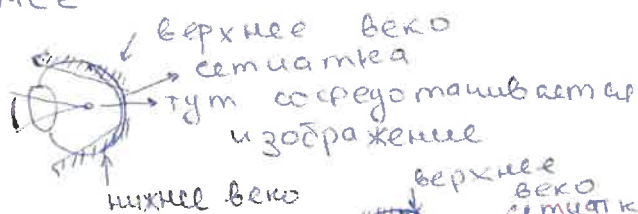 верхнее веко
сетчатка
тут сосредотачивается
изображение
нижнее веко
верхнее
веко